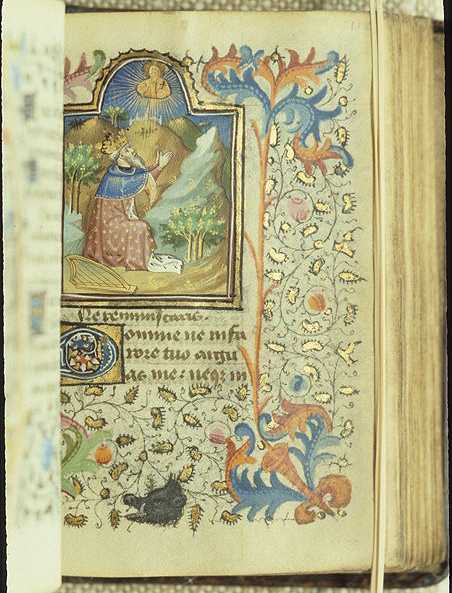 Ne reminiscaris.
Domine ne in fu
rore tuo argu
as me: neqz in